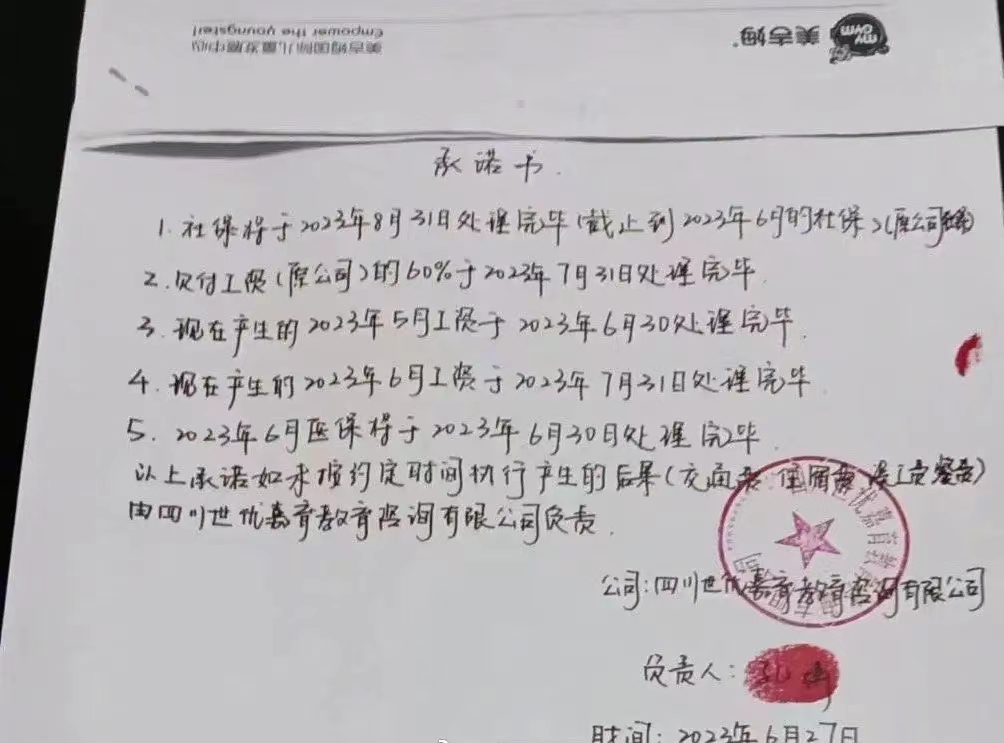 美吉姆国际儿童发展中心
Empower the youngster!
my gym 美吉姆
承诺书.
1. 社保将于2023年8月31日处理完毕(截止到2023年6月的社保)(原公司
2. 欠付工资(原公司)的60%于2023年7月31日处理完毕.
3. 现在产生的2023年5月工资于2023年6月30处理完毕.
4. 现在产生的2023年6月工资于2023年7月31日处理完毕.
5. 2023年6月医保将于2023年6月30日处理完毕.
以上承诺如未按约定时间执行产生的后果(交通费 住宿费 误工费
由四川世优嘉育教育咨询有限公司负责.
公司:四川世优嘉育教育咨询有限公司
负责人:
时间:2023年6月27日